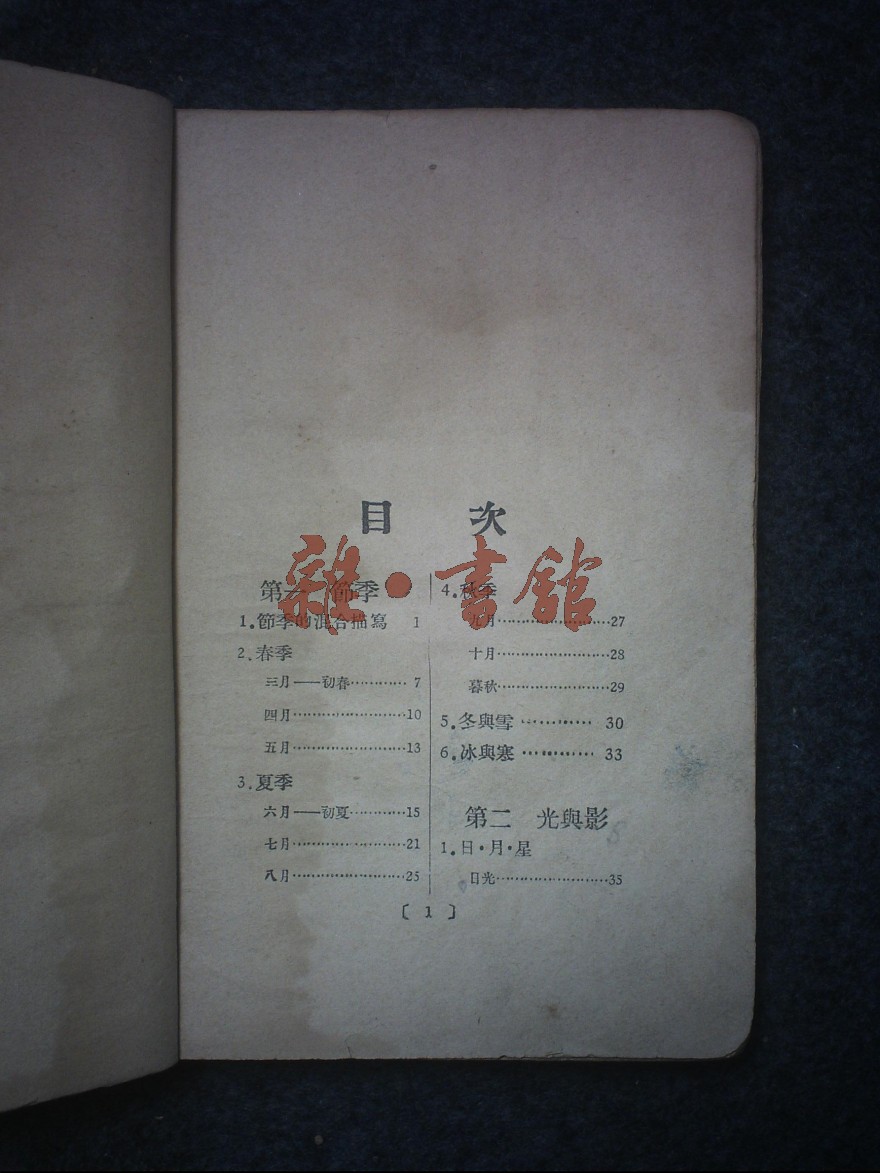 目 次
雜·書館
第一 節季
1.節季的混合描寫 1
2.春季
三月——初春………… 7
四月……………………10
五月……………………13
3.夏季
六月——初夏…………15
七月……………………21
八月……………………25
4.秋季
九月……………………27
十月……………………28
暮秋……………………29
5.冬與雪………… 30
6.冰與寒………… 33
第二 光與影
1.日·月·星
日光……………………35
〔 1 〕